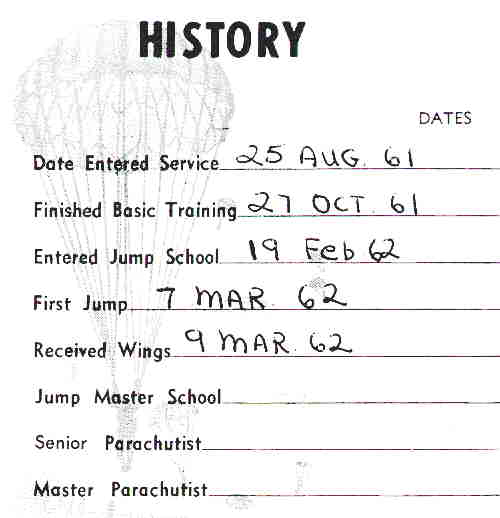 HISTORY
DATES
Date Entered Service 25 AUG. 61
Finished Basic Training 27 OCT. 61
Entered Jump School 19 Feb 62
First Jump 7 MAR. 62
Received Wings 9 MAR. 62
Jump Master School
Senior Parachutist
Master Parachutist